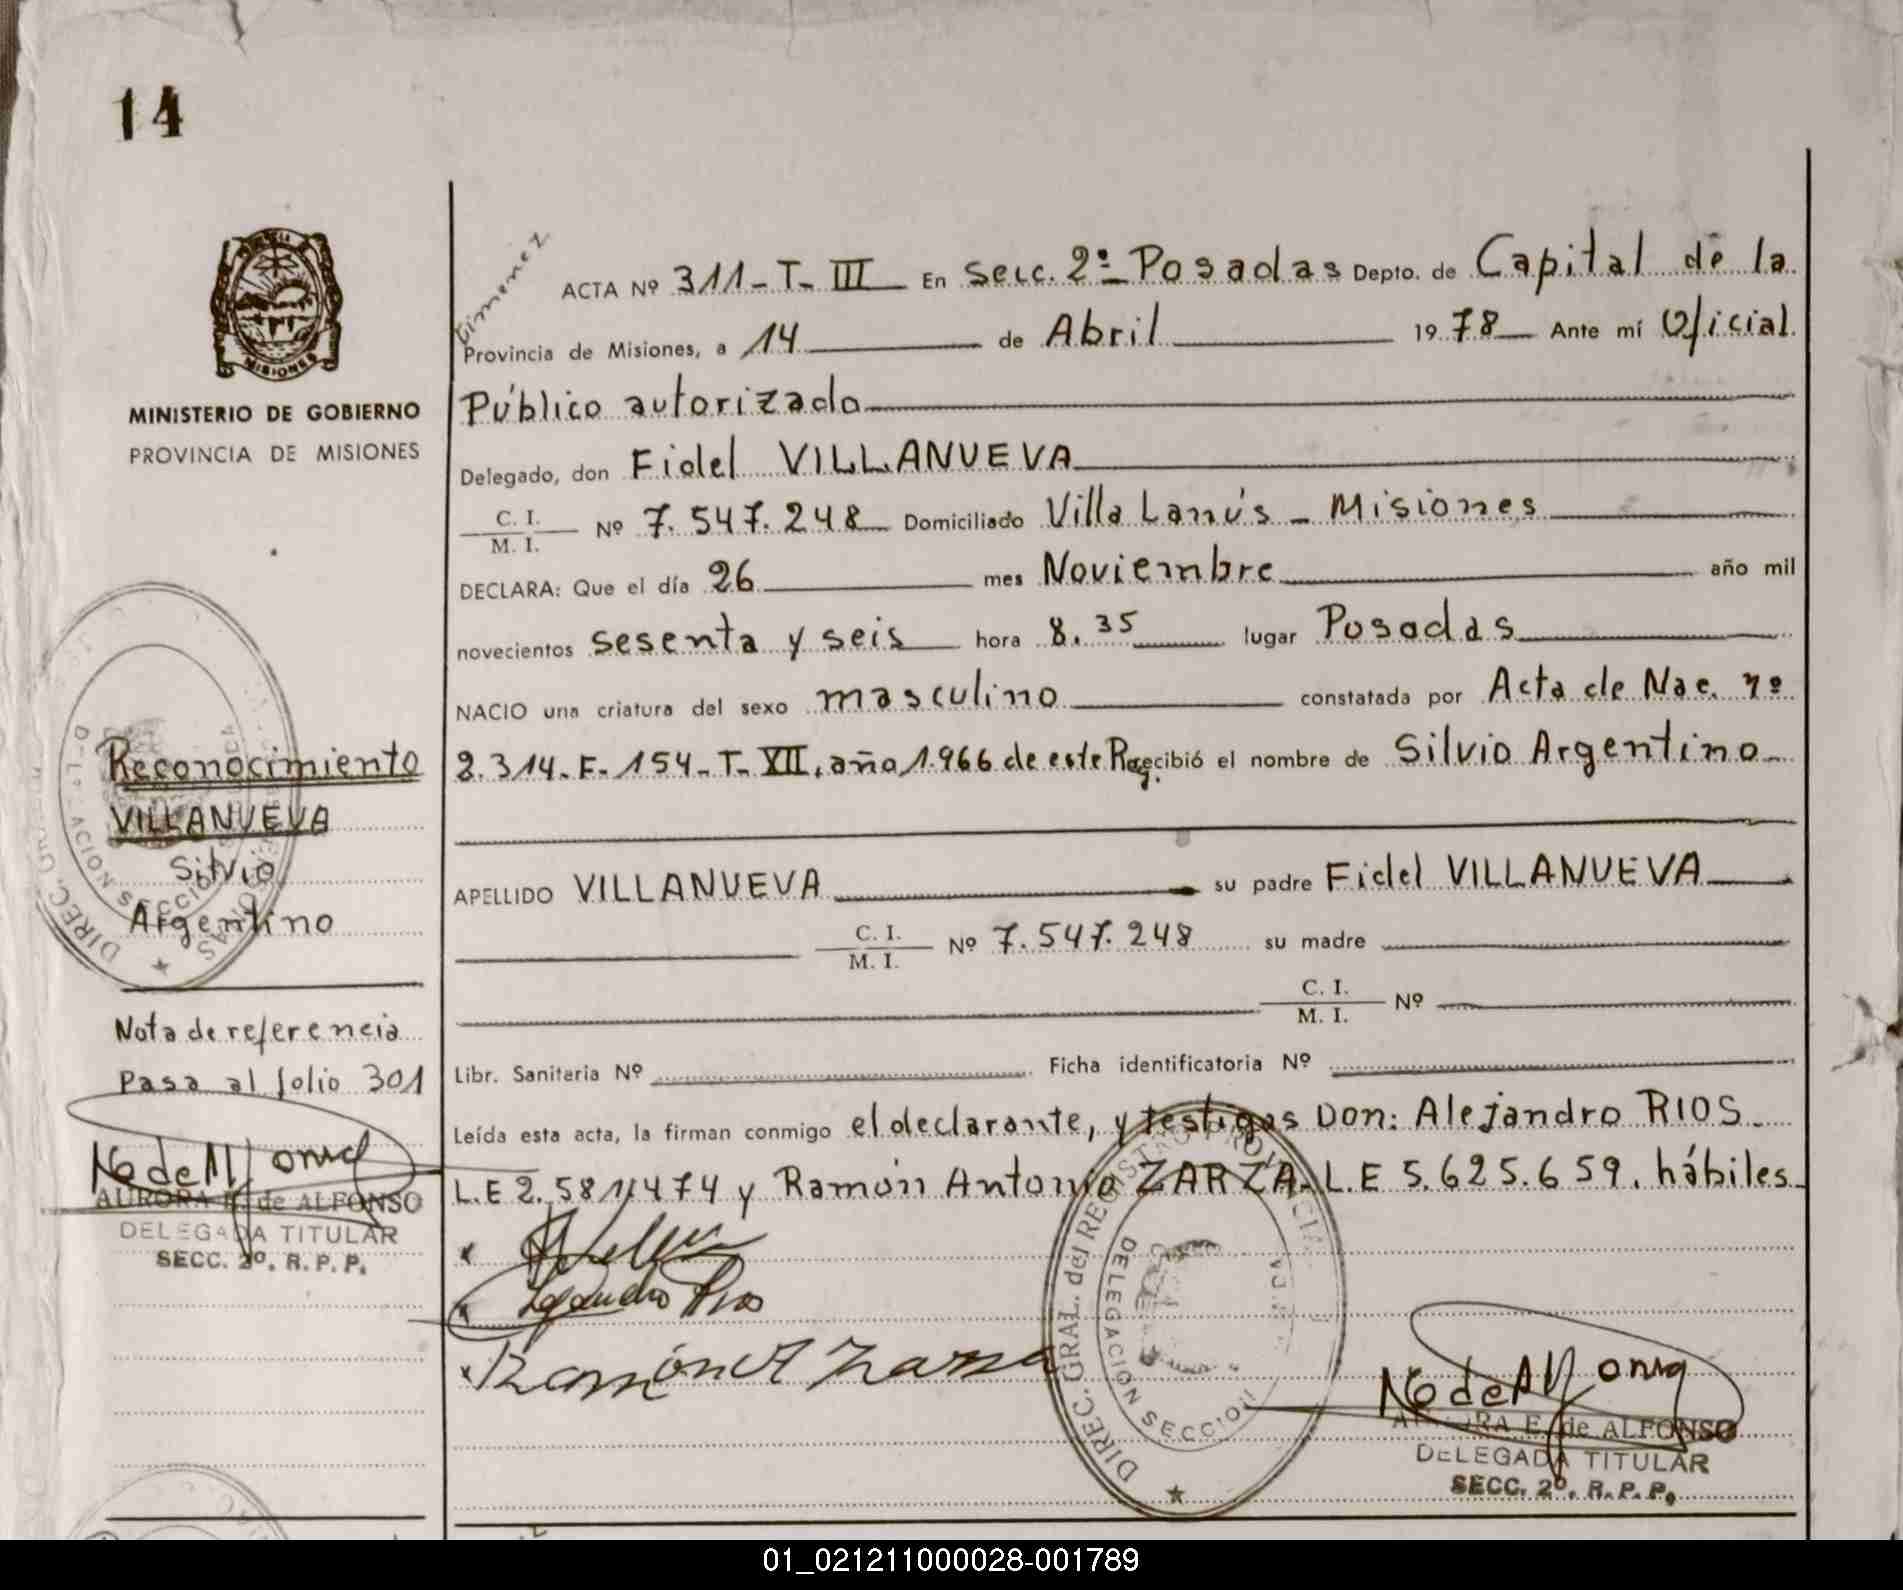 14
MISIONES
MINISTERIO DE GOBIERNO
PROVINCIA DE MISIONES
Gimenez
ACTA Nº 311-T-III En Secc. 2º Posadas Depto. de Capital de la
Provincia de Misiones, a 14 de Abril 1978 Ante mí Oficial
Público autorizado
Delegado, don Fidel VILLANUEVA
C. I.
M. I. Nº 7.547.248 Domiciliado Villa Lanús - Misiones
DECLARA: Que el día 26 mes Noviembre año mil
novecientos sesenta y seis hora 8.35 lugar Posadas
NACIO una criatura del sexo masculino constatada por Acta de Nac. nº
2.314-F-154-T-XII, año 1.966 de este Reg. Recibió el nombre de Silvio Argentino
APELLIDO VILLANUEVA su padre Fidel VILLANUEVA
C. I.
M. I. Nº 7.547.248 su madre
C. I.
M. I. Nº
Libr. Sanitaria Nº Ficha identificatoria Nº
Leída esta acta, la firman conmigo el declarante, y testigos Don: Alejandro RIOS
L.E 2.581.474 y Ramón Antonio ZARZA-L.E 5.625.659, hábiles
Reconocimiento
VILLANUEVA
Silvio
Argentino
Nota de referencia
Pasa al folio 301
AURORA E. de ALFONSO
DELEGADA TITULAR
SECC. 2º. R. P. P.
Alejandro Rios
Ramón A Zarza
DIREC. GRAL. del REGISTRO PROVINCIAL
DELEGACION SECCION
AURORA E. de ALFONSO
DELEGADA TITULAR
SECC. 2º. R. P. P.
01_021211000028-001789